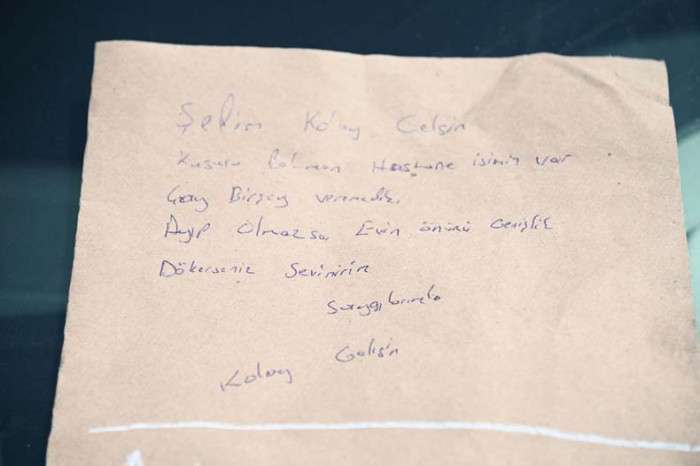 Şefim Kolay Gelsin
Kusura Bakman Hastane işimiz var
Çay Birşey veremedik.
Ayıp Olmazsa Evin önünü Genişlik
Dökerseniz Sevinirim
Saygılarımla
Kolay Gelsin